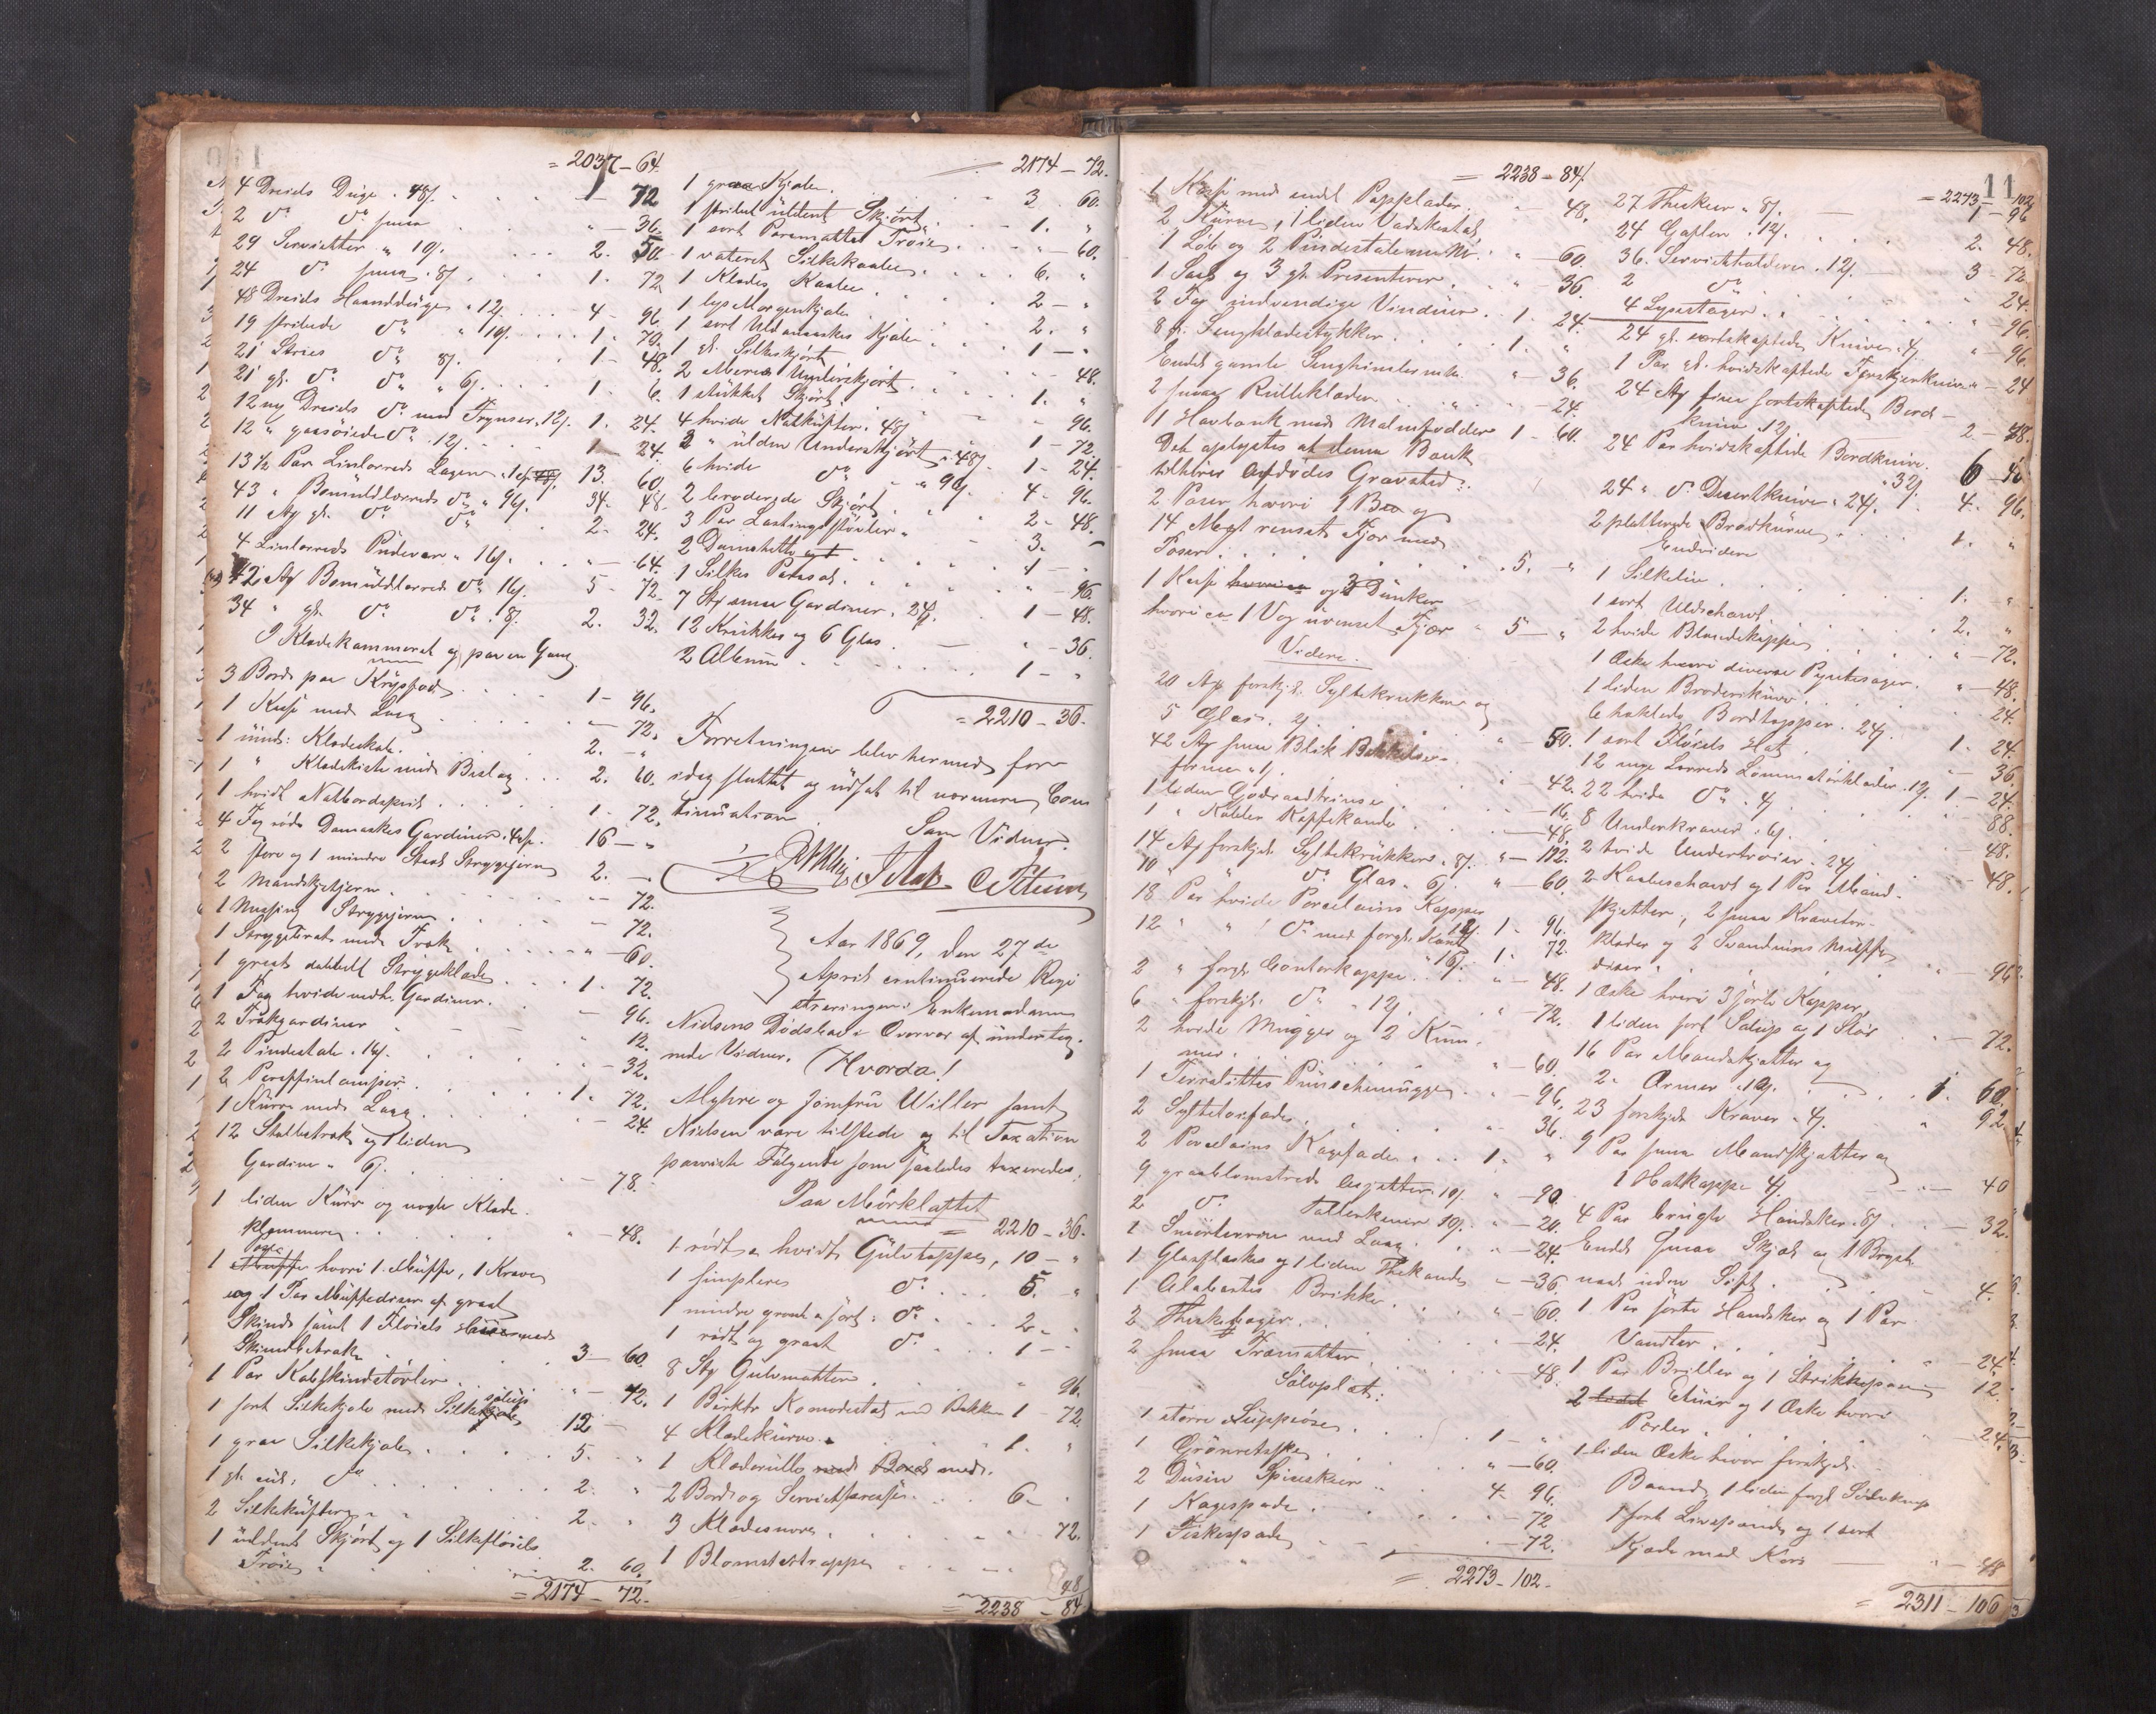 = 2037 - 64.
4 Dreiels Duge . 48β. . . . 1 - 72
2 do do smaa . . . " - 36.
29 Servietter " 10β. . . . 2. 50.
24 do smaa . 8β. . . . 1. 72
48 Dreiels Haandduge . 12β. . . 4 - 96
19 stribede do " 10β. . . . 1. 70.
21 Stries do " 8β. . . . 1 - 48.
21 gl. do do " 6β. . . . 1. 6.
12 nye Dreiels do med Frynser . 12β. 1. 24.
12 " gaasøiede do . 12β. . . 1 - 24.
13 1/2 Par Linlerreds Lagen . 13. 60.
43 " Bomuldlerreds do " 96β. 34. 48.
11 Stk gl. do do . . 2. 24.
4 Linlerreds Pudevar " 16β. . . " - 64.
42 Stk Bomuldlerreds do 16β. 5 - 72.
34 " gl. do do . 8β. 2. 32.
I Klædekammeret og paa en Gang.
3 Borde paa Krydsfod . . . 1 - 96.
1 Kasse med Laag . . . " - 72.
1 umd: Klædeskab . . . 2. "
1 " Klædekiste med Beslag . . . 2. 60.
1 hvidt Natbordskab . . . 1. 72.
4 Fag røde Damaskes Gardiner . 16 - "
2 store og 1 mindre Staal Strygejern 2. -
2 Mandskjetjern . . . " - 72.
1 Messing Strygejern . . . - 72.
1 Strygebræt med Træk . . . " - 60.
1 graat dobbelt Strygeklæde . . . 1. 72.
1 Fag hvide nedh. Gardiner . . . - 96.
2 Trækgardiner . . . 12.
2 Pindestole . 16β. . . . - 32.
2 Paraffinlamper . . . 1. 72.
1 Kurv med Laag . . . - 24.
12 Stolbetræk og 1 liden
Gardine " 6β. . . . - 78.
1 liden Kurv og nogle Klæde-
klemmer . . . " - 48.
1 hvori 1 Muffe, 1 Krave
og 1 Par Muffediser af graat
Skind samt 1 Fløiels med
Skindbetræk . . . 3 - 60.
1 Par Kalvskindstøvler . . . " - 72.
1 sort Silkekjole med Silkesalup 12 -
1 graa Silkekjole . . . 5. "
1 gl. do . . . 2. "
2 Silkekufter . . . 2. "
1 uldent Skjørt og 1 Silkefløiels
Trøie . . . 2. 60.
= 2174 - 72.
= 2174 - 72.
1 graa Kjole . . . 3. 60.
1 stribet uldent Skjørt . . . 1. "
1 sort Paramattes Trøie . . . - 60.
1 vateret Silkekaabe . . . 6. "
1 Klædes Kaabe . . . 2 - "
1 lys Morgenkjole . . . 2. "
1 sort Uldamaskes Kjole . . . 1 - "
1 gl. Silkeskjørt . . . 48.
2 Merino Underskjørt . . . 1. "
1 stukket Skjørt . . . - 96.
4 hvide Natkufter . 48β . . . 1 - 72.
3 " uldne Underskjørt " 48β . 1 - 24.
6 hvide do " 96β. . 4 - 96.
2 broderede Skjørt . . . 2 - 48.
3 Par Lastings støvler . . . 3. -
2 Damehatte . . . 1 - .
1 Silkes Parasol . . . " - 96.
7 Stk smaa Gardiner . 24β. . . 1 - 48.
12 Krukker og 6 Glas . . . - 36.
2 Album . . . 1 - "
= 2210 - 36.
Forretningen blev hermed for
idag sluttet og udsat til nærmere Con
tinuation.
Som Vidner.
Aar 1869, den 27de
April continuerede Regi
streringen i Enkemadame
Nielsens Dødsbo i Overvær af underteg-
nede Vidner. Hvorda!
Myhre og Jomfru Willer samt
Nielsen vare tilstede og til Taxation
paaviste Følgende som saaledes taxeredes:
Paa Mørkloftet
= 2210 - 36.
1 rødt & hvidt Gulvteppe, 10 - "
1 simplere do . . . 5. "
1 mindre grønt & sort: do . . . 2 - .
1 rødt og graat do . . . 1 - .
8 Stk Gulvmatter . . . " 96.
1 Birktr Komodestol med Bækken 1 - 72
4 Klædekurve . . . 1. "
1 Klæderulle med.
2 Borde og Servietpresse . . . 6 - .
3 Klædesnore . . . 72.
1 Blomstertrappe . . . 48
= 2238 - 84.
= 2238 - 84β.
1 Kasse med endel Papplader . . . - 48.
2 Kurve, 1 liden Vadskestol,
1 Løb og 2 Pindestole . . . " - 60
1 Sæk og 3 gl. Presenterer . . . - 36.
2 Fag indvendige Vinduer . . 1. 24.
8 gl. Sengklædestykker . . . 1. "
Endel gamle Senghimler . . . " - 36.
2 smaa Rulleklæder . . . - 24.
1 Havebænk med Malmfødder 1 - 60.
Det oplystes at denne Bænk
tilhører Afdødes Gravsted.
2 Poser hvori 1 Bog
14 Mrk renset Fjær med
Poser . . . 5. "
1 Kasse og 3 Dunker
hvori ca 1 Vog urenset Fjær " 5 - "
Videre.
20 Stk forskjel. Syltekrukker og
5 Glas . 2β. . . . " - 50.
42 Stk smaa Blik
former " 1β. . . . - 42.
1 liden Godraadtrinse . . . - 16.
1 " Kobber Kaffekande . . . - 48.
14 Stk forskjel. Syltekrukker . 8β. " - 112.
10 " do Glas . 6β. " - 60.
18 Par hvide Porcelains Kopper 12β. 1 - 96.
12 " do med forgl. Kant 16β. 1. 72.
2 " forgl. Contorkopper . . . " - 48.
6 " forskjel. do " 12β. . . - 72.
2 hvide Mugger og 2 Kum-
mer . . . " - 60.
1 Terralittes Punschemugge . . . - 96.
2 Syltetøifade . . . " 36.
2 Porcelains Kagefade . . . 1. "
9 graablomstrede Assietter 10β. " - 90.
2 do Tallerkener 10β. " - 20.
1 Smørterrin med Laag . . . - 24.
1 Glasflaske og 1 liden Thekande - - 36.
1 Alabastes Brikke . . . " - 60.
2 Theskebager . . . - 24.
2 smaa Træmatter . . . 48.
Sølvplet:
1 større Suppeøse . . . 1 - "
1 Grønretskee . . . " - 60.
2 Dusin Spiseskeer . . . 4. 96.
1 Kagespade . . . - 72
1 Fiskespade . . . - 72.
= 2273 - 102.
11
= 2273 - 102β
27 Theskeer " 8β. - 1 - 96
24 Gafler . 12β. . . . 2. 48.
36. Servietholdere . 12β. - 3 - 72
2 do . . . " 24.
4 Lysestager . . . " - 96.
24 gl. sortskaftede Knive . 4β. " - 96.
1 Par gl. hvidskaftede Forskjærknive " - 24
24 Stk fine sortskaftede Bord-
knive . 12β. . . . 2 - 48.
24 Par hvidskaftede Bordknive.
" 32β. 6 - 48
24 " do Desertknive . 24β. 4. 96.
2 pletterede Brødkurve . . . 1. "
Endvidere
1 Silkelin . . . 1. "
1 sort Uldschawl . . . 2. "
2 hvide Blondekapper . . . " - 72.
1 Æske hvori diverse Pyntesager . " - 48.
1 liden Broderskuvr . . . 24.
6 heklede Bordtepper . 24β. . . 1. 24.
1 sort Fløiels Hat . . . " - 36.
12 nye Lerreds Lommetørklæder . 12β. 1 - 24.
22 hvide do " 4β . . . 88.
8 Underkraver . 6β. . . . - 48.
2 hvide Undertrøier . 24β . . . - 48.
2 Kaabeschawl og 1 Par Mand-
skjetter, 2 smaa Kravetør-
klæder og 2 Svandunns Muffe
diser . . . " - 96
1 Æske hvori 3 sorte Kapper,
1 liden sort Salup og 1 Slør . . . - 72.
16 Par Mandskjetter og
2 " Ærmer . 12β. . . . 1. 60.
23 forskjel. Kraver . 4β. . . . " 92.
9 Par smaa Mandskjetter og
1 Hatkappe 4β. - " - 40
4 Par brugte Handsker . 8β . . . - 32.
Endel smaa Skjæl og 1 Bryst-
naal uden Stift . . . 4.
1 Par sorte Handsker og 1 Par
Vandter . . . " - 24.
1 Par Briller og 1 Strikkepose " 12.
2 Etuier og 1 Æske hvori
Perler . . . - 24.
1 liden Æske hvori forskjel.
Baand, 1 liden forgl. Sølvknap
1 sort Livspænde og 1 sort
Kjæde med Kors - " - 48
= 2311 - 106